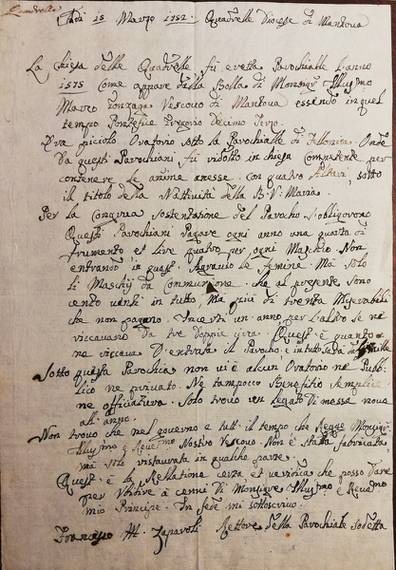 Quadrelle
Adi 15 Marzo 1752. Quadrelle Diocese di Mantova
La Chiesa delle Quadrelle fù eretta Parochialle l'anno
1575 Come appare dalla Bolla di Monsigr Illusmo
Marco Gonzaga Vescouo di Mantova essendo in quel
tempo Pontefice Gregorio Decimo Terzo.
Era piciolo Oratorio sotto la Parochialle di Onde
da questi Parochiani fù ridotto in chiesa Competente per
contenere le anime anesse. con quatro Altari, sotto
il titolo della Nattività della B. V. Maria.
Per la Congrua Sostentatione del Parocho s'obligorono
Questi Parochiani Pagare ogni anno una quarta di
frumento et lire quatro per ogni Maschio. Non
entrando in quest' Agravio le femine. Mà solo
li Maschij da Communione. che al presente sono
cento uenti in tutto, Mà più di trenta Miserabili
che non pagano. Incerti un anno per l'altro se ne
riccavano da tre doppie circa. Quest' è quanto
ne riccava D'entrata il Parocho, è in tutto
Sotto questa Parochia non ui è alcun Oratorio ne Pub-
blico ne priuato. Ne tampoco Benefitio semplice
ne officiatura. Solo trouo un legato di messe noue
all' anno.
Non trouo che nel gouerno e tutt' il tempo che Regge Monsigr
Illusmo e Reuesmo Nostro Vescouo. Non è stata fabricata
mà solo ristaurata in qualche parte.
Quest' è la Rellatione certa et ueridica che posso dare
per Vbidire à cenni di Monsigre Illusmo e Reuesmo
mio Principe. In fede mi sottoscriuo.
Francesco Zapparoli Rettore della Parochialle sodetta